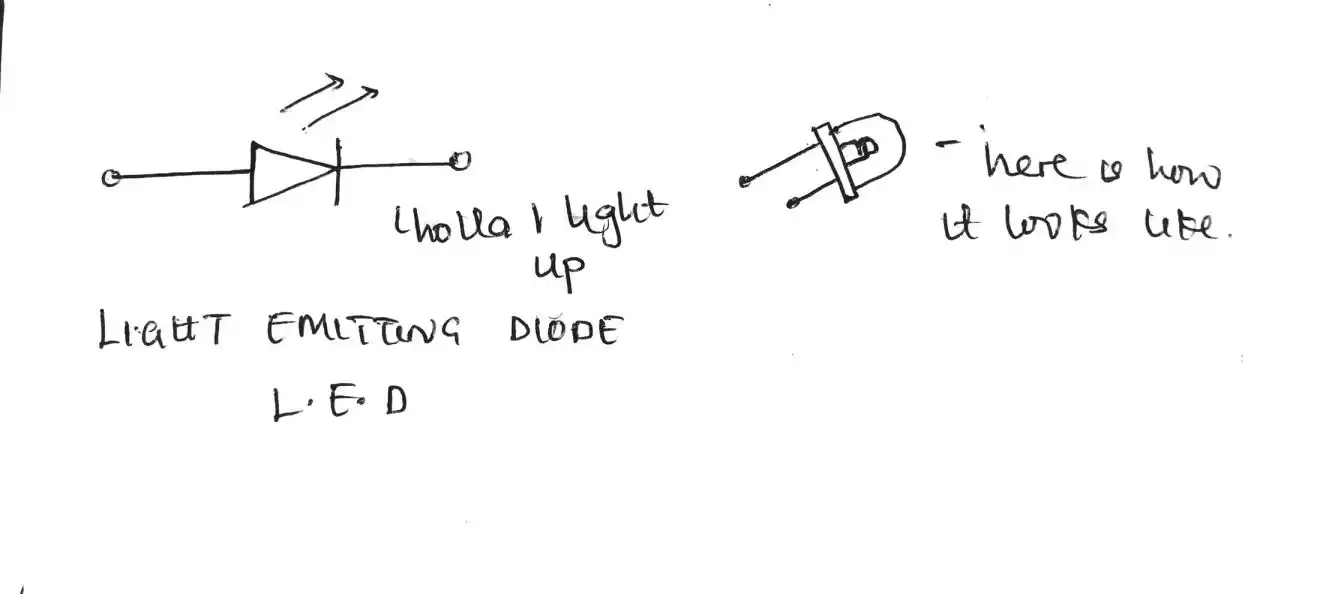 holla I light
up
LIGHT EMITTING DIODE
L.E.D
- here is how
it looks like.